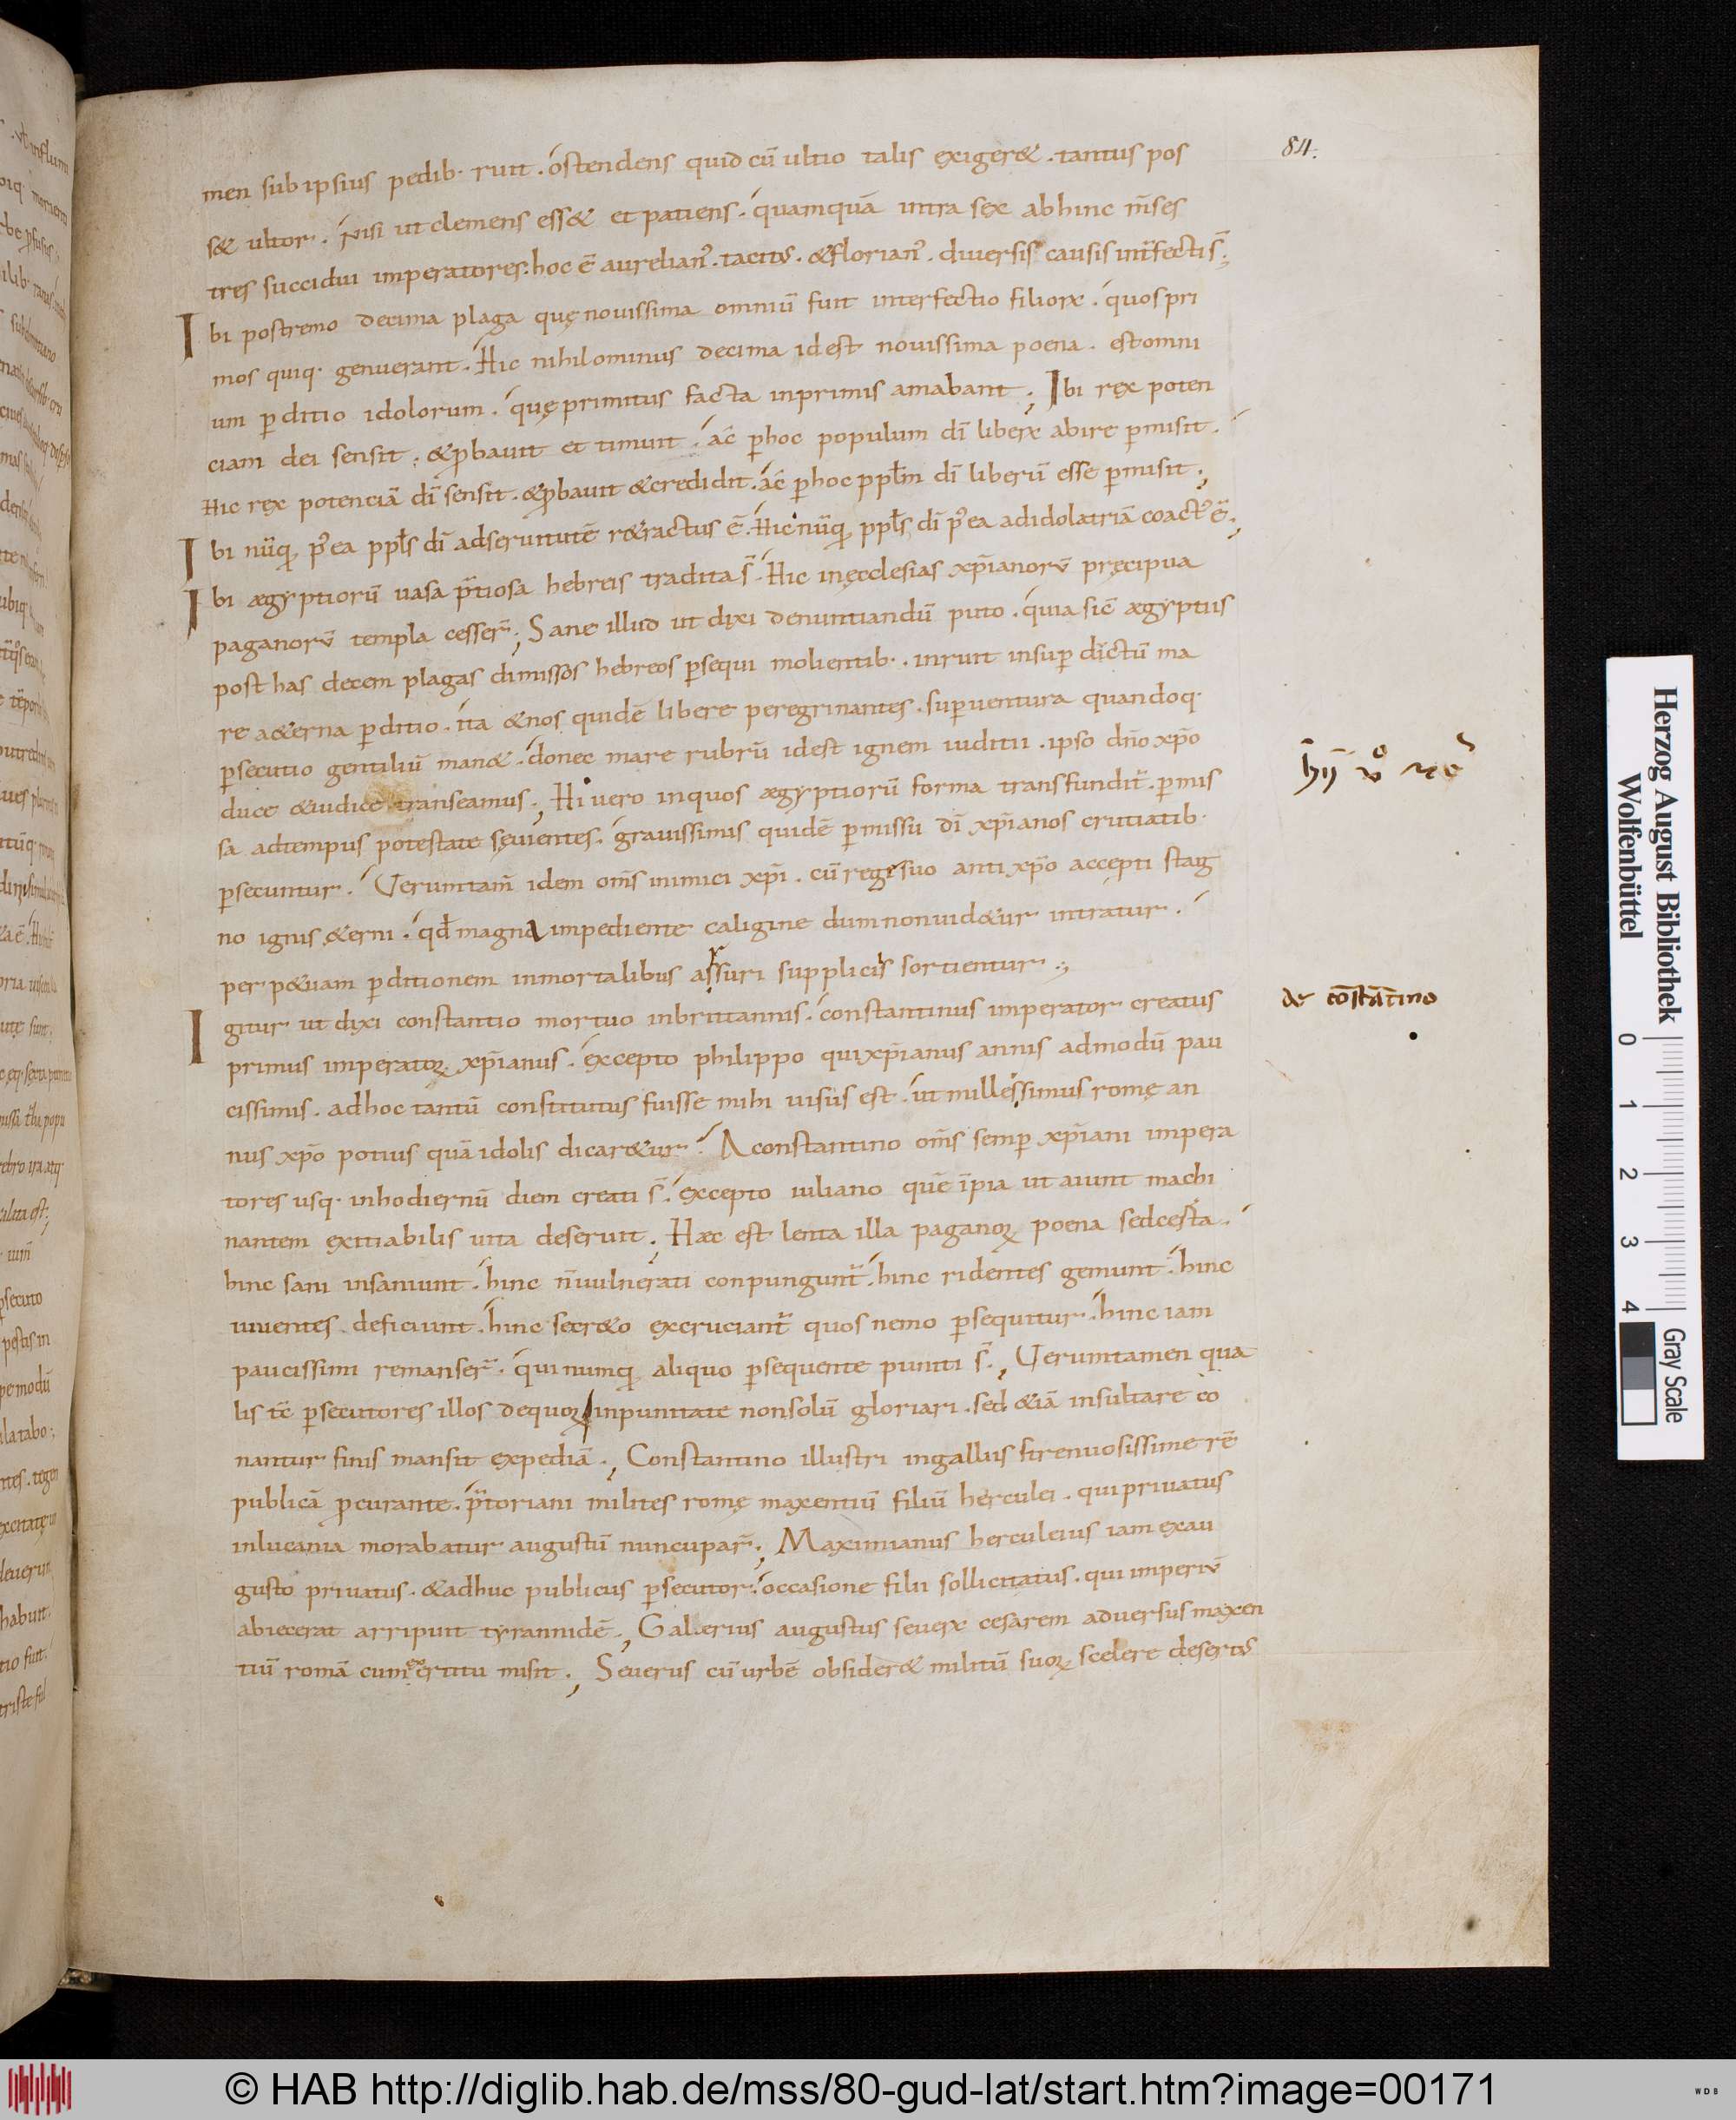 84.
men sub ipsius pedib· ruit . ostendens quid cū ultio talis exiger& . tantus pos
s& ultor . nisi ut clemens ess& et patiens . quamquā intra sex abhinc m̄ses
tres succidui imperatores . hoc ē aurelian' . tacitus . & florian' . diuersis causis int̄fecti s̄;
Ibi postremo decima plaga quę nouissima omniū fuit interfectio filiorꝝ . quos pri
mos quiq· genuerant . Hic nihilominus decima idest nouissima poena . est omni
um ꝑditio idolorum . quę primitus facta inprimis amabant ; Ibi rex poten
ciam dei sensit . & ꝓbauit et timuit . ac̄ ꝑ hoc populum dī liberꝝ abire ꝑmisit .
Hic rex potenciā dī sensit . & ꝓbauit & credidit . ac̄ ꝑ hoc ppłm dī liberū esse ꝑmisit ;
Ibi nūq̨ p' ea ppłs dī ad seruitutē r&ractus ē . Hic nūq̨ ppłs dī p' ea ad idolatriā coact' ē ;
Ibi ægyptiorū uasa p̄tiosa hebreis tradita s̄ . Hic in ęcclesias xp̄ianorū pręcipua
paganorū templa cesser̄ ; Sane illud ut dixi denuntiandū puto . quia sic̄ ægyptus
post has decem plagas dimissos hebreos ꝑsequi molientib· . inruit insuꝑ dictū ma
re a&erna ꝑditio . ita & nos quidē libere peregrinantes . suꝑuentura quandoq·
ꝑsecutio gentiliū man& . donec mare rubrū idest ignem iuditii . ipso dn̄o xp̄o
duce & iudice transeamus ; Hi uero in quos ægyptiorū forma transfundit̄ . ꝑmis
sa ad tempus potestate sęuientes . grauissimis quidē ꝑmissu dī xp̄ianos crutiatib·
ꝑsecuntur . Uerumtam̄ idem om̄s inimici xp̄i . cū rege suo anti xp̄o accepti stag
no ignis &erni . qđ magna impediente caligine dum non uid&ur intratur .
per p&uam ꝑditionem inmortalibus assuri suppliciis sortientur .;
Igitur ut dixi constantio mortuo in brittannis . constantinus imperator creatus
primus imperatoꝝ xp̄ianus . excepto philippo qui xp̄ianus annis admodū pau
cissimis . ad hoc tantū constitutus fuisse mihi uisus est . ut millessimus romę an
nus xp̄o potius quā idolis dicar&ur . A constantino om̄s semꝑ xp̄iani impera
tores usq· in hodiernū diem creati s̄ . excepto iuliano quē īpia ut aiunt machi
nantem exitiabilis uita deseruit ; Hæc est lenta illa paganoꝝ poena sed certa .
hinc sani insaniunt . hinc n̄ uulnerati conpungunt̄ . hinc ridentes gemunt . hinc
uiuentes deficiunt . hinc secr&o excruciant̄ quos nemo ꝑsequitur . hinc iam
paucissimi remanser̄ . qui numq̨ aliquo ꝑsequente puniti s̄ ; Uerumtamen qua
lis tc̄ ꝑsecutores illos de quoꝝ inpunitate non solū gloriari . sed &iā insultare co
nantur finis mansit expediā ; Constantino illustri in galliis strenuosissime rē
publicā ꝓcurante . p̄toriani milites romę maxentiū filiū herculei . qui priuatus
in lucania morabatur augustū nuncupar̄ ; Maximianus herculeius iam exau
gusto priuatus . & adhuc publicus ꝑsecutor . occasione filii sollicitatus . qui imperiū
abiecerat arripuit tyrannidē ; Galerius augustus seuerꝝ cesarem aduersus maxen
tiū romā cum exercitu misit ; Seuerus cū urbē obsider& militū suoꝝ scelere desertus
de cōstātino
Herzog August Bibliothek
Wolfenbüttel
0 1 2 3 4
Gray Scale
© HAB http://diglib.hab.de/mss/80-gud-lat/start.htm?image=00171
WDB